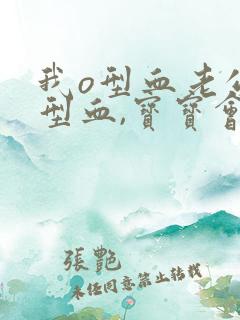 我o型血老公
型血,寶寶會
張艷
未任同意禁止转载